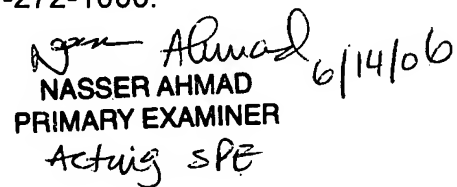 -272-1000.
Nasser Ahmad 6/14/06
NASSER AHMAD
PRIMARY EXAMINER
Acting SPE